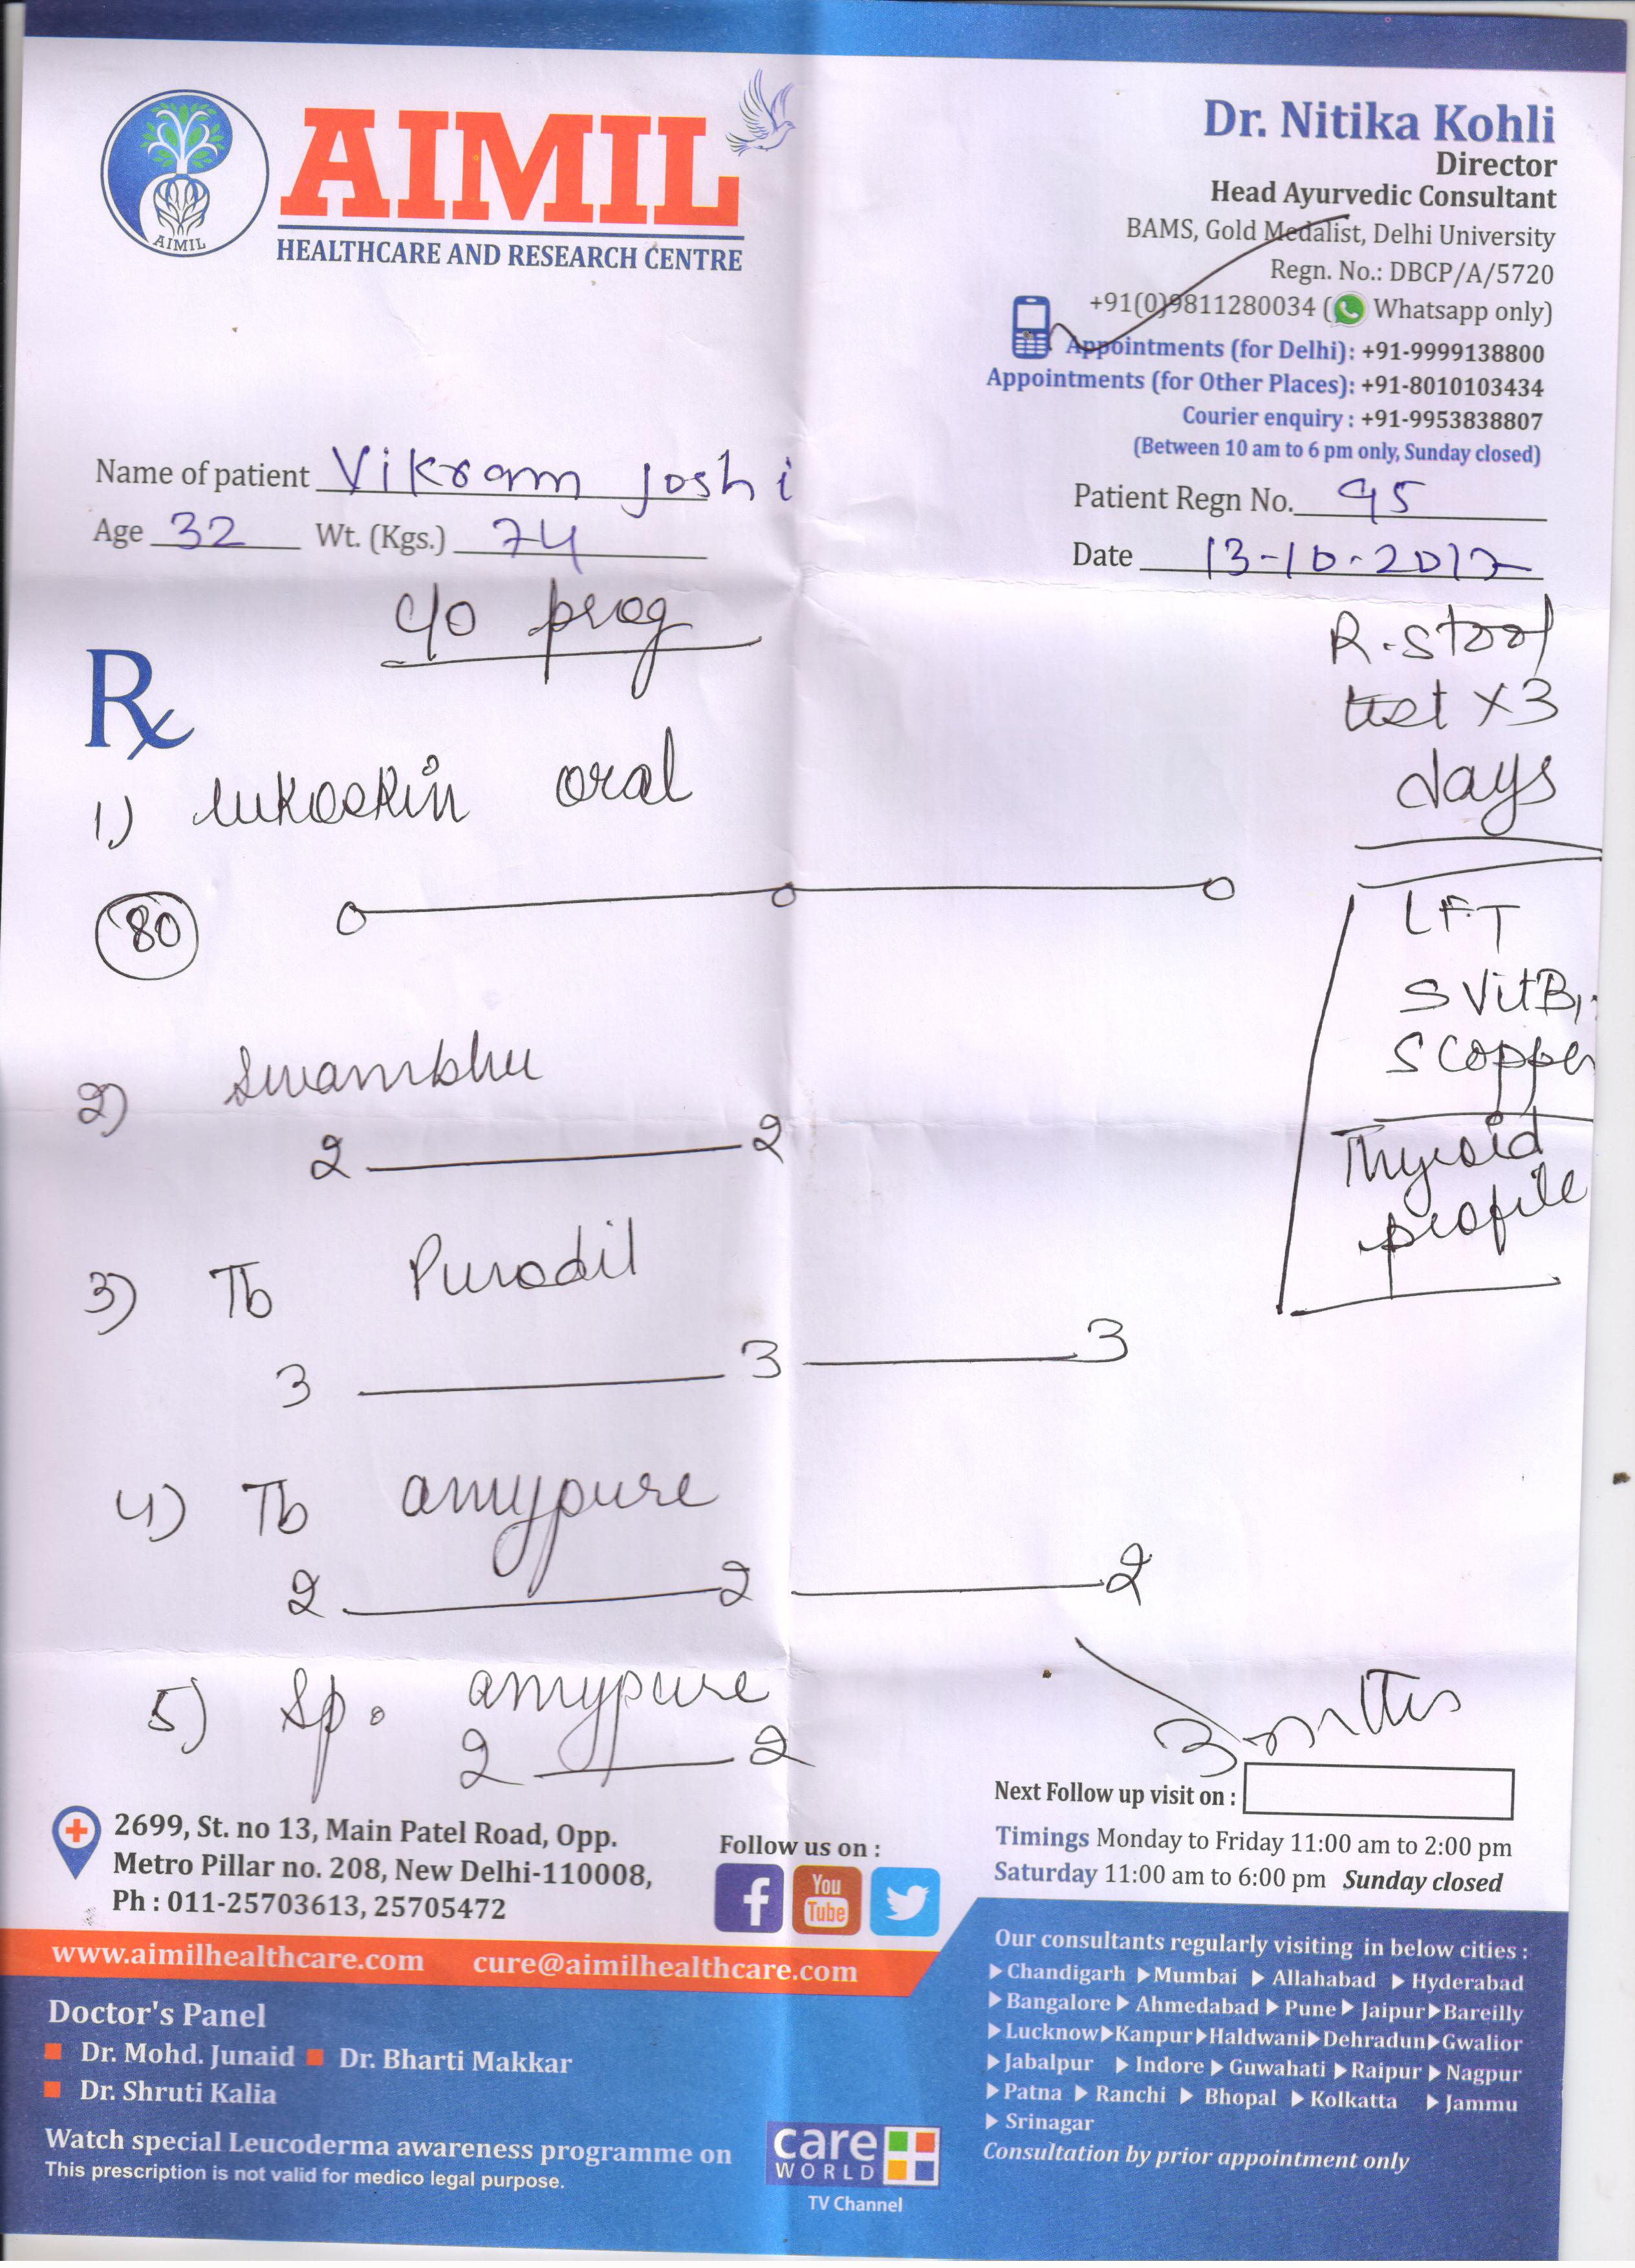 AIMIL
HEALTHCARE AND RESEARCH CENTRE
AIMIL
Dr. Nitika Kohli
Director
Head Ayurvedic Consultant
BAMS, Gold Medalist, Delhi University
Regn. No.: DBCP/A/5720
+91(0)9811280034 (Whatsapp only)
Appointments (for Delhi): +91-9999138800
Appointments (for Other Places): +91-8010103434
Courier enquiry : +91-9953838807
(Between 10 am to 6 pm only, Sunday closed)
Name of patient Vikram Joshi
Patient Regn No. 95
Age 32 Wt. (Kgs.) 74
Date 13-10-2017
c/o prog
Rx
R. stool
test x3
days
1) lukoskin oral
80
LFT
S VitB
S Copper
Thyroid
profile
2) Swambhu
2 2
3) Tb Purodil
3 3 3
4) Tb amypure
2 2 2
5) Sp. amypure
2 2
3 mths
Next Follow up visit on :
Timings Monday to Friday 11:00 am to 2:00 pm
Saturday 11:00 am to 6:00 pm Sunday closed
2699, St. no 13, Main Patel Road, Opp.
Metro Pillar no. 208, New Delhi-110008,
Ph : 011-25703613, 25705472
Follow us on :
f You Tube
www.aimilhealthcare.com cure@aimilhealthcare.com
Doctor's Panel
Dr. Mohd. Junaid Dr. Bharti Makkar
Dr. Shruti Kalia
Watch special Leucoderma awareness programme on
This prescription is not valid for medico legal purpose.
care
WORLD
TV Channel
Our consultants regularly visiting in below cities :
Chandigarh Mumbai Allahabad Hyderabad
Bangalore Ahmedabad Pune Jaipur Bareilly
Lucknow Kanpur Haldwani Dehradun Gwalior
Jabalpur Indore Guwahati Raipur Nagpur
Patna Ranchi Bhopal Kolkatta Jammu
Srinagar
Consultation by prior appointment only